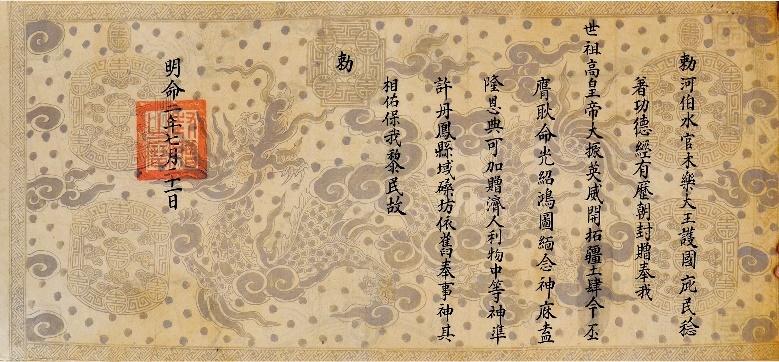 勅河伯水官木樂大王護國庇民稔
著功德經有歷朝封贈奉我
世祖高皇帝大振英威開拓疆土肆今丕
膺耿命光紹鴻圖緬念神庥盍
隆恩典可加贈濟人利物中等神準
許丹鳳縣域磔坊依舊奉事神其
相佑保我黎民故
勅
明命二年七月二十一日